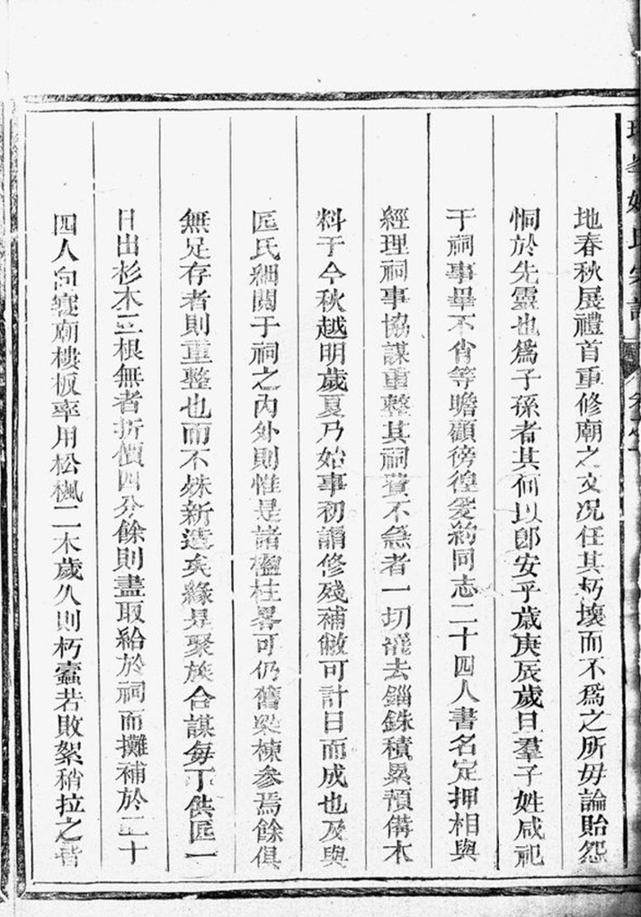 地春秋展禮首重修廟之文况任其朽壞而不爲之所毋論貽怨
恫於先靈也爲子孫者其何以卽安乎歲庚辰歲日羣子姓咸祀
于祠事畢不肖等瞻顧徬徨爰約同志二十四人書名定押相與
經理祠事協謀重整其祠費不急者一切罷去錙銖積累預備木
料于今秋越明歲夏乃始事初謂修殘補敝可計日而成也及與
匠氏細閱于祠之內外則惟是諸楹柱畧可仍舊梁棟參焉餘俱
無足存者則重整也而不殊新造矣緣是聚族合謀每丁供匠一
日出杉木三根無者折價四分餘則盡取給於祠而攤補於二十
四人向寢廟樓板率用松楓二木歲久則朽蠹若敗絮稍拉之皆